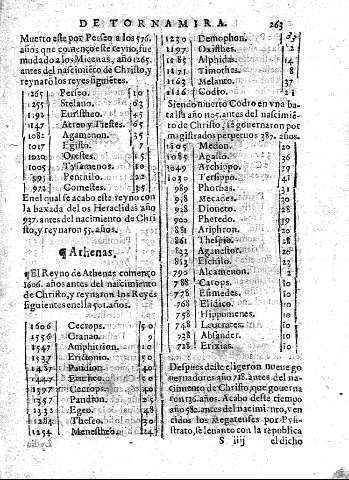 DE TORNAMIRA. 263
Muerto este por Perseo a los 576.
años que començo este reyno, fue
mudado a los Micenas, año 1265.
antes del nascimiẽto de Christo, y
reynarõ los reyes siguiẽtes.
1265 Perseo. 10
1255 Stelano. 63
1192 Euristheo. 45
1147 Atreo y Tiestes. 65
1082 Agamenon. 35
1017 Egisto. 7
1010 Orestes. 15
1005 Tysamenos. 10
995 Penthilo. 22
972 Cometes. 35
En el qual se acabo este reyno con
la baxada del os Heraclidas año
937. antes del nacimiento de Chri
sto, y reynaron 55. años.
¶Athenas.
¶El Reyno de Athenas començo
1606. años antes del nascimiento
de Christo, y reynaron los Reyes
siguientes en ella 501. años.
1606 Cecrops. 50
1556 Granao. 9
1547 Amphitrion. 10
1537 Erictonio. 50
1487 Pandion. 40
1447 40
1397 Cecrops. 40
1357 Pandion. 25
1332 Egeo. 48
1284 Theseo. 30
1254 Menestheo. 24
1230 Demophon. 33
1197 Oxisthes. 12
1185 Alphidas. 14
1171 Timothes. 8
1163 Melanto. 37
1126 Codro. 21
Siendo muerto Codro en vna ba
talla año 1105. antes del nascimiẽ
to de Christo, se gouernaron por
magistrados perpetuos 387. años.
1105 Medon. 20
1085 Agasto. 36
1049 Archippo. 19
1030 Tersippo. 41
989 Phorbas. 31
958 Mecades. 30
928 Dioneto. 28
900 Pheredo. 19
881 Ariphron. 20
861 Thespio. 28
833 Aganestor. 20
813 Eschilo. 23
790 Alcamenon. 2
788 Carops. 10
778 Esimedes. 10
768 Elidico. 10
758 Hippomenes. 10
748 Leucrates. 10
738 Absander. 10
728 Erixias. 10
Despues deste eligeron nueue go
uernadores año 718. antes del na-
cimento de Christo, que gouerna
ron 136. años. Acabo deste tiempo
año 582. antes del nacimiento, ven
cidos los Megatenses por Pysi-
strato, se leuanto con la republica
S iiij el dicho